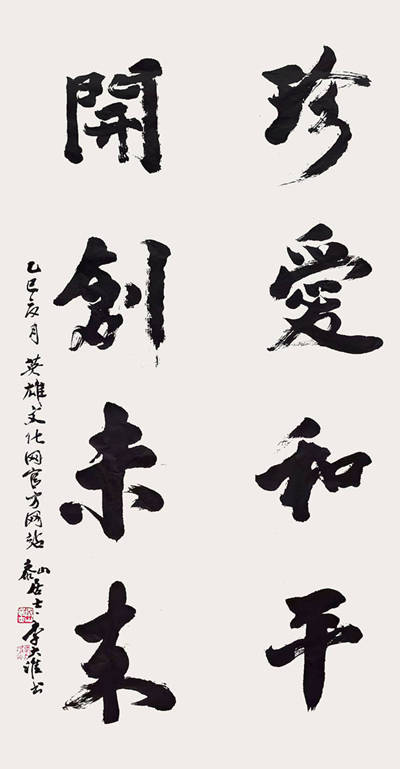 珍愛和平
開創未来
乙巳夏月 英雄文化网官方网站 泰山居士 李大雅书